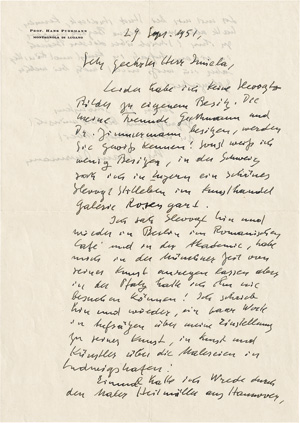 PROF. HANS PURRMANN
MONTAGNOLA DI LUGANO
29 Sept. 1951.
Sehr geehrter Herr
Leider habe ich keine Slevogt
Bilder zu eigenem Besitz. Die
meine Freunde und
Dr. Zimmermann besitzen, werden
Sie gewiss kennen! Sonst weiss ich
wenig Besitzer, in der Schweiz
sah ich in Luzern ein schönes
Slevogt Stilleben im Kunsthandel
Galerie Rosengart.
Ich sah Slevogt hin und
wieder in Berlin im Romanischen
Café und in der Akademie, habe
mich in der Münchner Zeit von
seiner Kunst anregen lassen aber
in der Pfalz habe ich ihn nie
besuchen können! Ich schrieb
hin und wieder, ein paar Worte
in Aufsätzen über meine Einstellung
zu seiner Kunst, in Kunst und
Künstler über die Malereien in
Ludwigshafen!
Einmal hatte ich durch
den Maler Heilmüller aus Hannover,